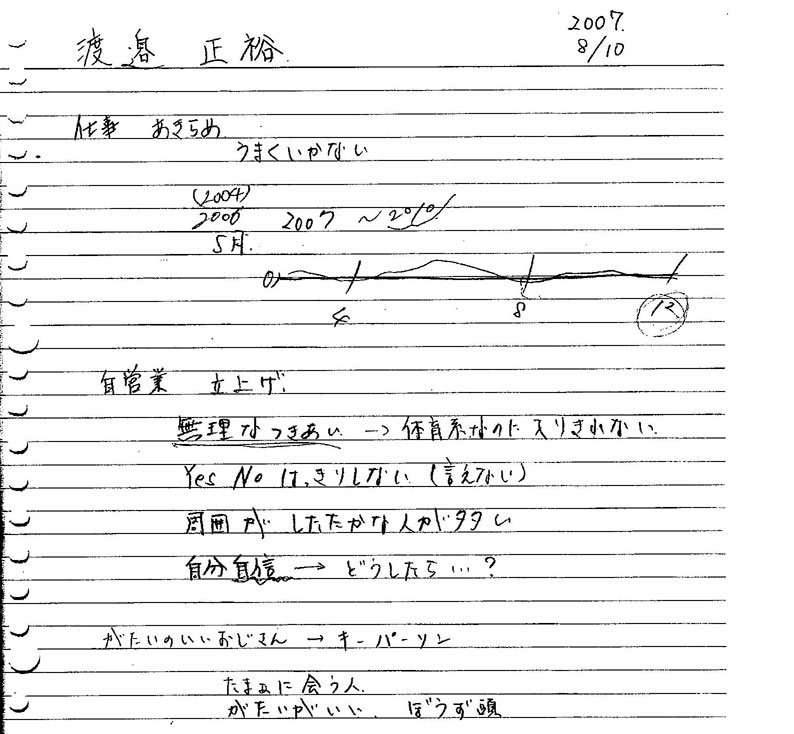 2007.
8/10
渡邉 正裕
仕事 あきらめ
うまくいかない
(2004)
2006 2007 ~2010
5月
0
4 8 12
自営業 立上げ
無理なつきあい → 体育系なのに入りきれない
Yes No はっきりしない (言えない)
周囲が したたかな人が多い
自分自信 → どうしたら…?
がたいのいいおじさん → キーパーソン
たまに会う人
がたいがいい ぼうず頭